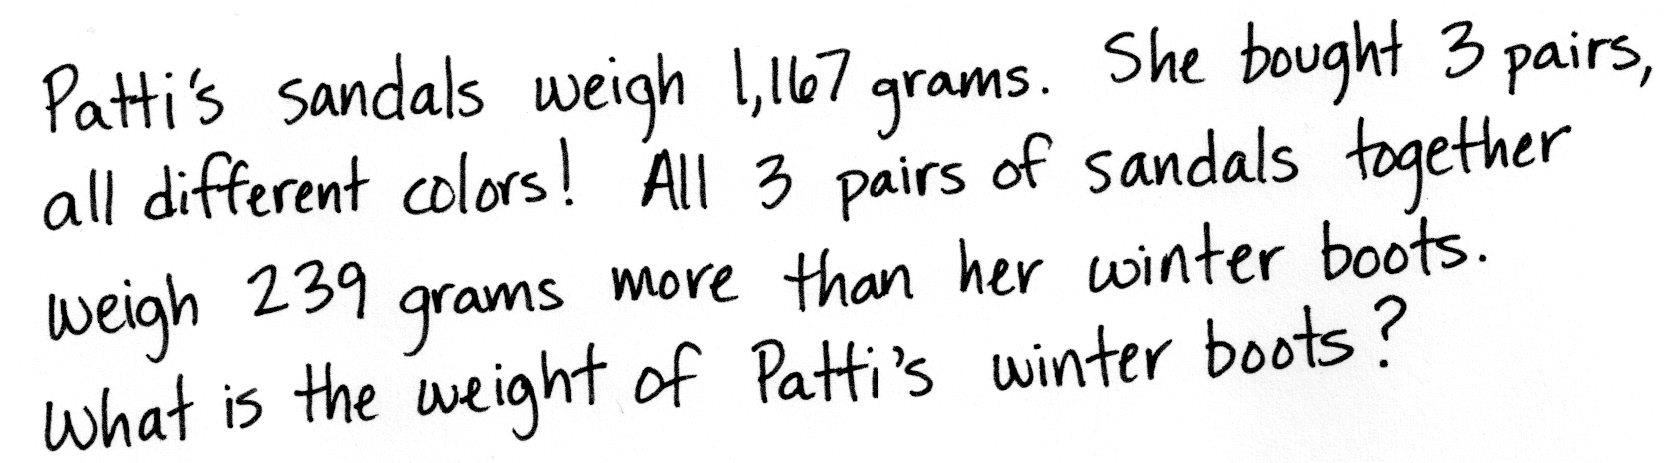 Patti's sandals weigh 1,167 grams. She bought 3 pairs,
all different colors! All 3 pairs of sandals together
weigh 239 grams more than her winter boots.
What is the weight of Patti's winter boots?